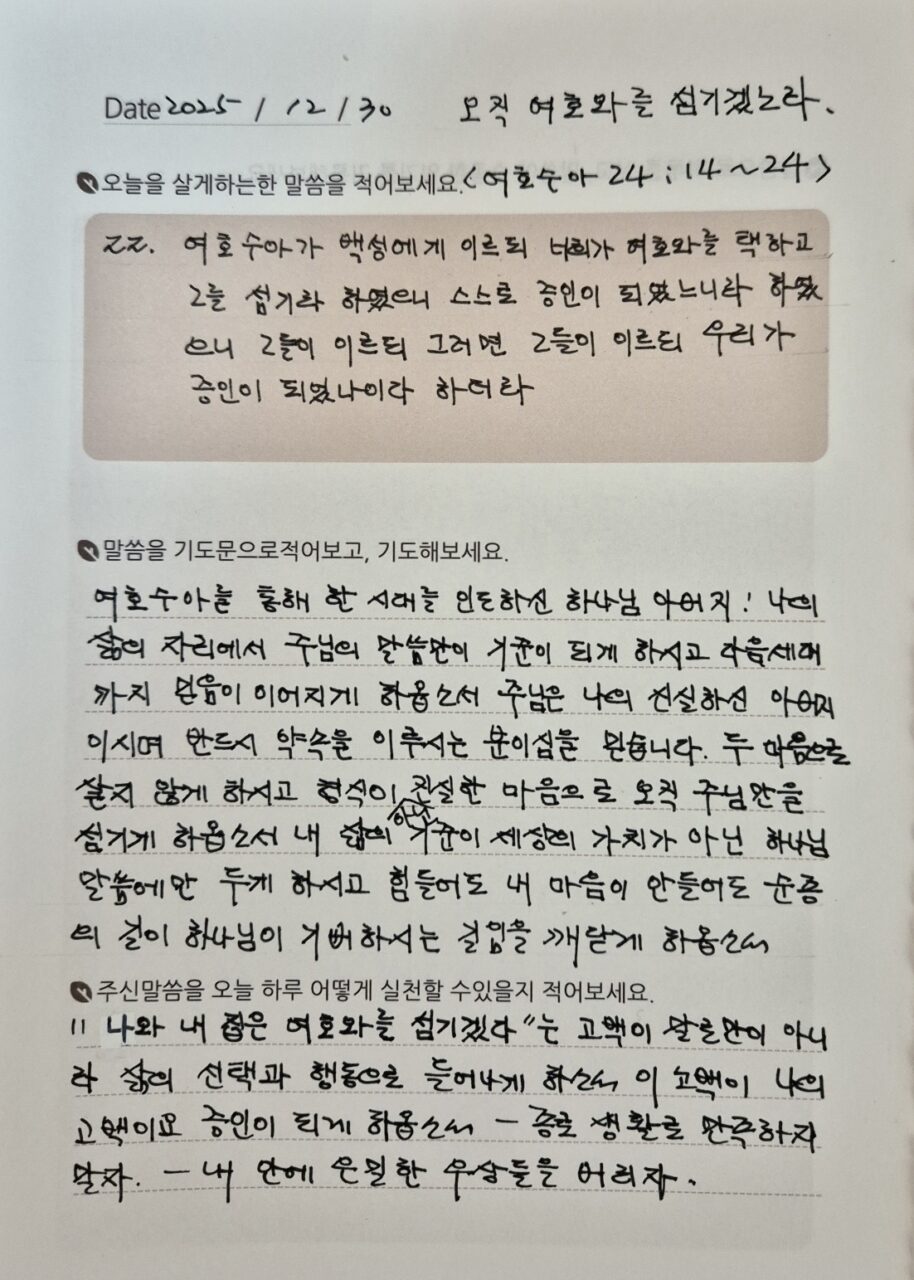 Date 2025 / 12 / 30 오직 여호와를 섬기겠노라.
오늘을 살게하는한 말씀을 적어보세요. <여호수아 24 : 14 ~ 24>
22. 여호수아가 백성에게 이르되 너희가 여호와를 택하고
그를 섬기라 하였으니 스스로 증인이 되었느니라 하였
으니 그들이 이르되 그러면 그들이 이르되 우리가
증인이 되었나이다 하더라
말씀을 기도문으로적어보고, 기도해보세요.
여호수아를 통해 한 시대를 인도하신 하나님 아버지! 나의
삶의 자리에서 주님의 말씀만이 기준이 되게 하시고 다음세대
까지 믿음이 이어지게 하옵소서 주님은 나의 신실하신 아버지
이시며 반드시 약속을 이루시는 분이심을 믿습니다. 두 마음으로
살지 않게 하시고 형식이 아닌 진실한 마음으로 오직 주님만을
섬기게 하옵소서 내 삶의 기준이 세상의 가치가 아닌 하나님
말씀에만 두게 하시고 힘들어도 내 마음이 안들어도 순종
의 길이 하나님이 기뻐하시는 길임을 깨닫게 하옵소서
주신말씀을 오늘 하루 어떻게 실천할 수있을지 적어보세요.
" 나와 내 집은 여호와를 섬기겠다"는 고백이 말로만이 아니
라 삶의 선택과 행동으로 들어나게 하소서 이 고백이 나의
고백이요 증인이 되게 하옵소서 - 종교 생활로 만족하지
말자. - 내 안에 은밀한 우상들을 버리자.